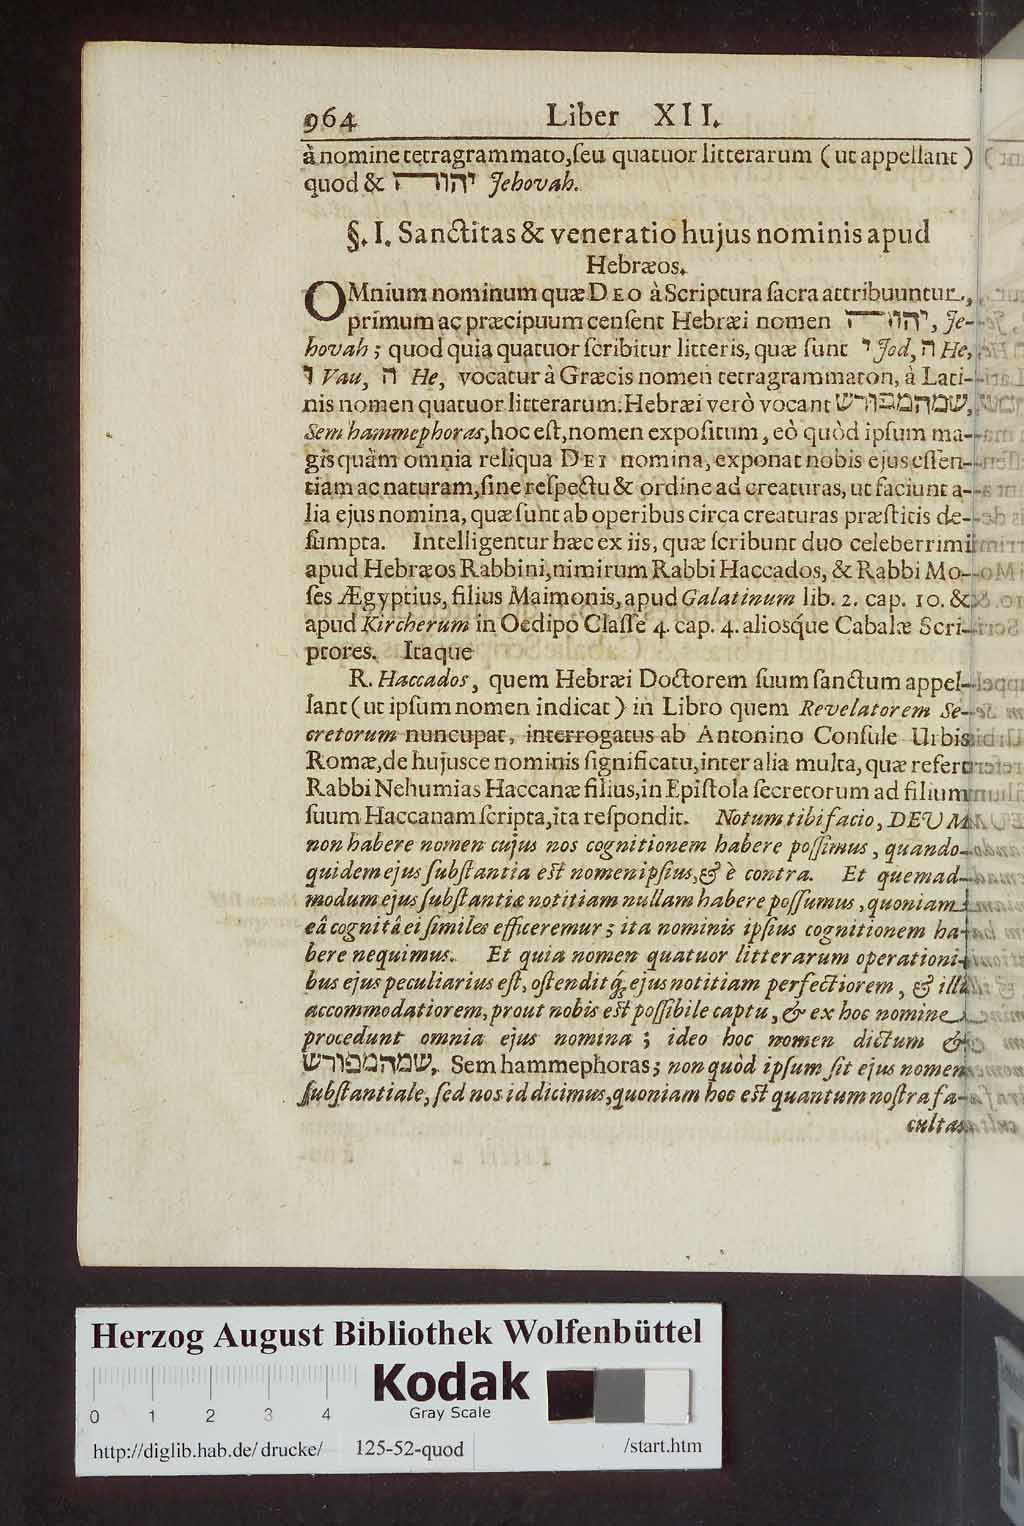 964 Liber XII.
à nomine tetragrammato, ſeu quatuor litterarum (ut appellant)
quod & יהוה Jehovah.
§. I. Sanctitas & veneratio hujus nominis apud
Hebræos.
OMnium nominum quæ DEO à Scriptura ſacra attribuuntur,
primum ac præcipuum cenſent Hebræi nomen יהוה, Je-
hovah; quod quia quatuor ſcribitur litteris, quæ ſunt י Jod, ה He,
ו Vau, ה He, vocatur à Græcis nomen tetragrammaton, à Lati-
nis nomen quatuor litterarum: Hebræi verò vocant שמהמפורש,
Sem hammephoras, hoc eſt, nomen expoſitum, eò quòd ipſum ma-
gis quàm omnia reliqua DEI nomina, exponat nobis ejus eſſen-
tiam ac naturam, ſine reſpectu & ordine ad creaturas, ut faciunt a-
lia ejus nomina, quæ ſunt ab operibus circa creaturas præſtitis de-
ſumpta. Intelligentur hæc ex iis, quæ ſcribunt duo celeberrimi
apud Hebræos Rabbini, nimirum Rabbi Haccados, & Rabbi Mo-
ſes Ægyptius, filius Maimonis, apud Galatinum lib. 2. cap. 10. &
apud Kircherum in Oedipo Claſſe 4. cap. 4. aliosq́ue Cabalæ Scri-
ptores. Itaque
R. Haccados, quem Hebræi Doctorem ſuum ſanctum appel-
lant (ut ipſum nomen indicat) in Libro quem Revelatorem Se-
cretorum nuncupat, interrogatus ab Antonino Conſule Urbis
Romæ, de hujusce nominis ſignificatu, inter alia multa, quæ refert
Rabbi Nehumias Haccanæ filius, in Epiſtola ſecretorum ad filium
ſuum Haccanam ſcripta, ita reſpondit. Notum tibi facio, DEUM
non habere nomen cujus nos cognitionem habere poſſimus, quando-
quidem ejus ſubſtantia eſt nomen ipſius, & è contra. Et quemad-
modum ejus ſubſtantiæ notitiam nullam habere poſſumus, quoniam
eâ cognitâ ei ſimiles efficeremur; ita nominis ipſius cognitionem ha-
bere nequimus. Et quia nomen quatuor litterarum operationi-
bus ejus peculiarius eſt, oſtenditq́; ejus notitiam perfectiorem, & illi
accommodatiorem, prout nobis eſt poſſibile captu, & ex hoc nomine
procedunt omnia ejus nomina; ideo hoc nomen dictum &
שמהמפורש, Sem hammephoras; non quòd ipſum ſit ejus nomen
ſubſtantiale, ſed nos id dicimus, quoniam hoc eſt quantum noſtra fa-
cultas
Herzog August Bibliothek Wolfenbüttel
Kodak
Gray Scale
0 1 2 3 4
http://diglib.hab.de/drucke/ 125-52-quod /start.htm